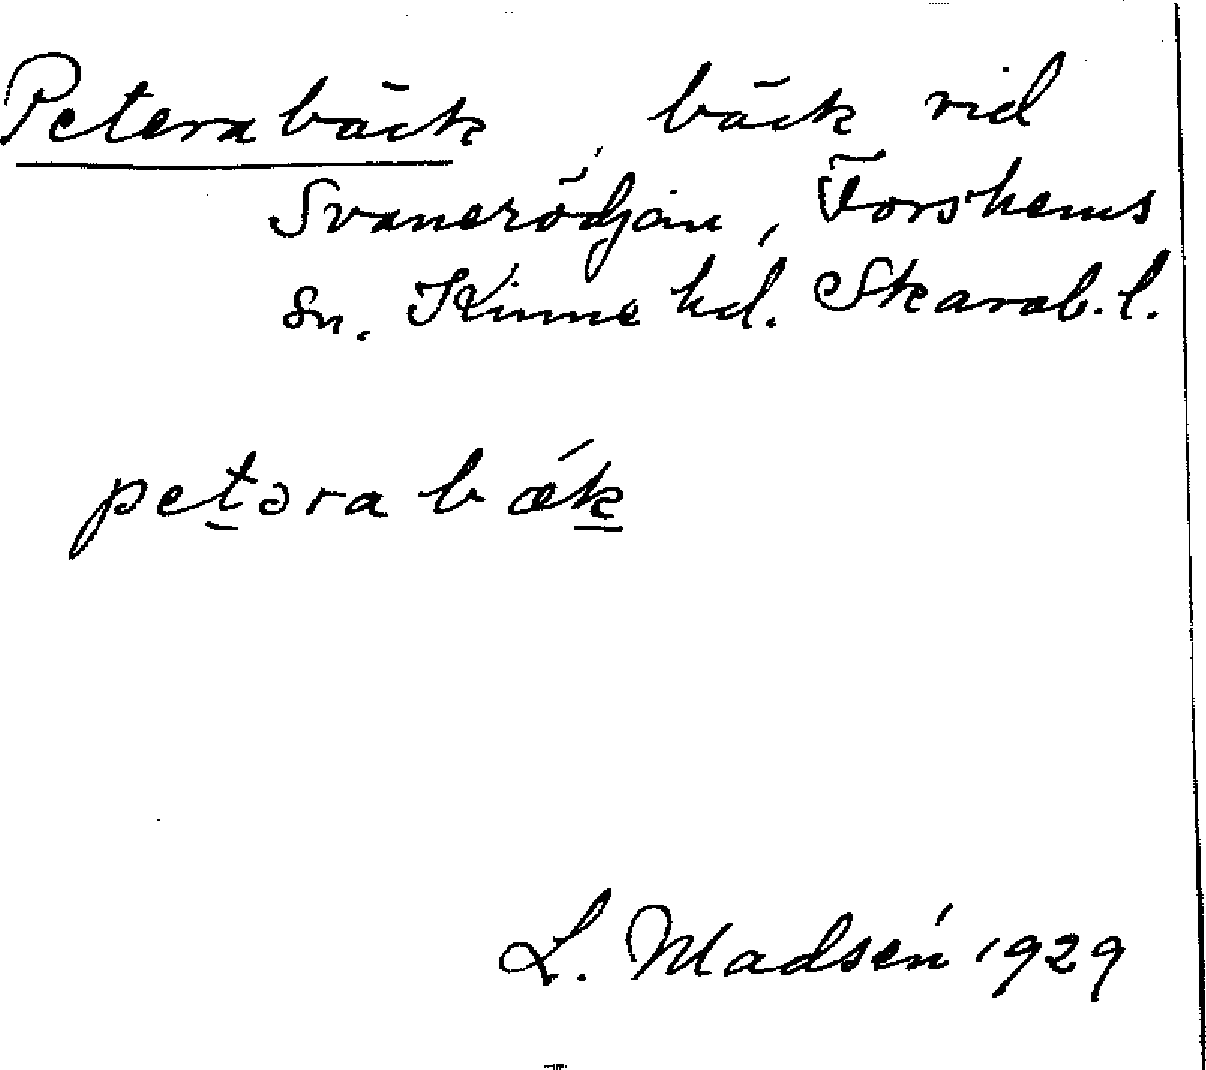 Peterabäck, bäck vid
Svanerödjan, Forshems
sn. Kinne hd. Skarab. l.
petəra bǽk
L. Madsén 1929